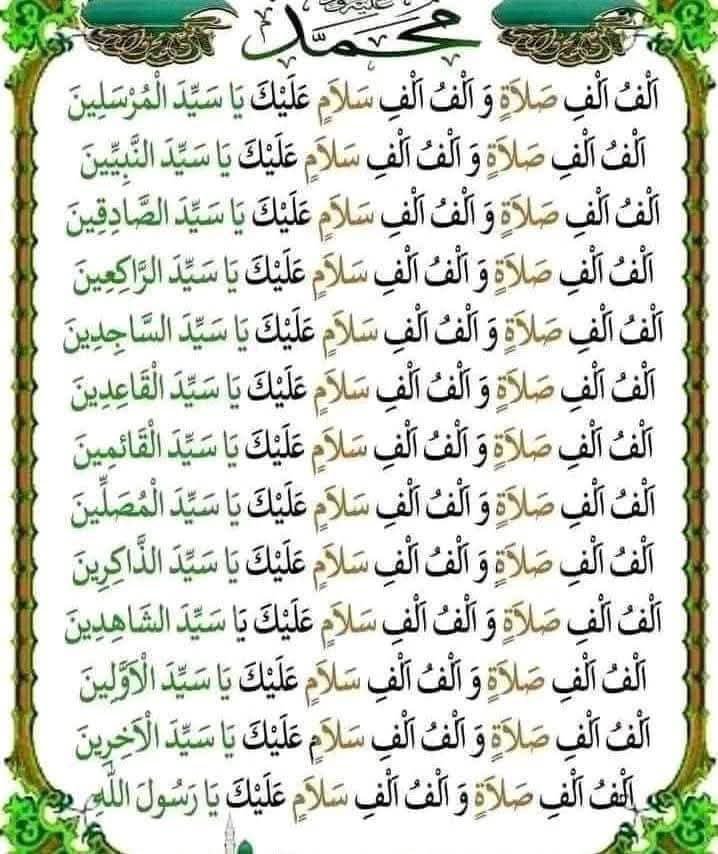 محمد
اَلْفُ اَلْفِ صَلاَةٍ وَ اَلْفُ اَلْفِ سَلاَمٍ عَلَيْكَ يَا سَيِّدَ الْمُرْسَلِينَ
اَلْفُ اَلْفِ صَلاَةٍ وَ اَلْفُ اَلْفِ سَلاَمٍ عَلَيْكَ يَا سَيِّدَ النَّبِيِّينَ
اَلْفُ اَلْفِ صَلاَةٍ وَ اَلْفُ اَلْفِ سَلاَمٍ عَلَيْكَ يَا سَيِّدَ الصَّادِقِينَ
اَلْفُ اَلْفِ صَلاَةٍ وَ اَلْفُ اَلْفِ سَلاَمٍ عَلَيْكَ يَا سَيِّدَ الرَّاكِعِينَ
اَلْفُ اَلْفِ صَلاَةٍ وَ اَلْفُ اَلْفِ سَلاَمٍ عَلَيْكَ يَا سَيِّدَ السَّاجِدِينَ
اَلْفُ اَلْفِ صَلاَةٍ وَ اَلْفُ اَلْفِ سَلاَمٍ عَلَيْكَ يَا سَيِّدَ الْقَاعِدِينَ
اَلْفُ اَلْفِ صَلاَةٍ وَ اَلْفُ اَلْفِ سَلاَمٍ عَلَيْكَ يَا سَيِّدَ الْقَائِمِينَ
اَلْفُ اَلْفِ صَلاَةٍ وَ اَلْفُ اَلْفِ سَلاَمٍ عَلَيْكَ يَا سَيِّدَ الْمُصَلِّينَ
اَلْفُ اَلْفِ صَلاَةٍ وَ اَلْفُ اَلْفِ سَلاَمٍ عَلَيْكَ يَا سَيِّدَ الذَّاكِرِينَ
اَلْفُ اَلْفِ صَلاَةٍ وَ اَلْفُ اَلْفِ سَلاَمٍ عَلَيْكَ يَا سَيِّدَ الشَاهِدِينَ
اَلْفُ اَلْفِ صَلاَةٍ وَ اَلْفُ اَلْفِ سَلاَمٍ عَلَيْكَ يَا سَيِّدَ الْاَوَّلِينَ
اَلْفُ اَلْفِ صَلاَةٍ وَ اَلْفُ اَلْفِ سَلاَمٍ عَلَيْكَ يَا سَيِّدَ الْاَخِرِينَ
اَلْفُ اَلْفِ صَلاَةٍ وَ اَلْفُ اَلْفِ سَلاَمٍ عَلَيْكَ يَا رَسُولَ اللهِ